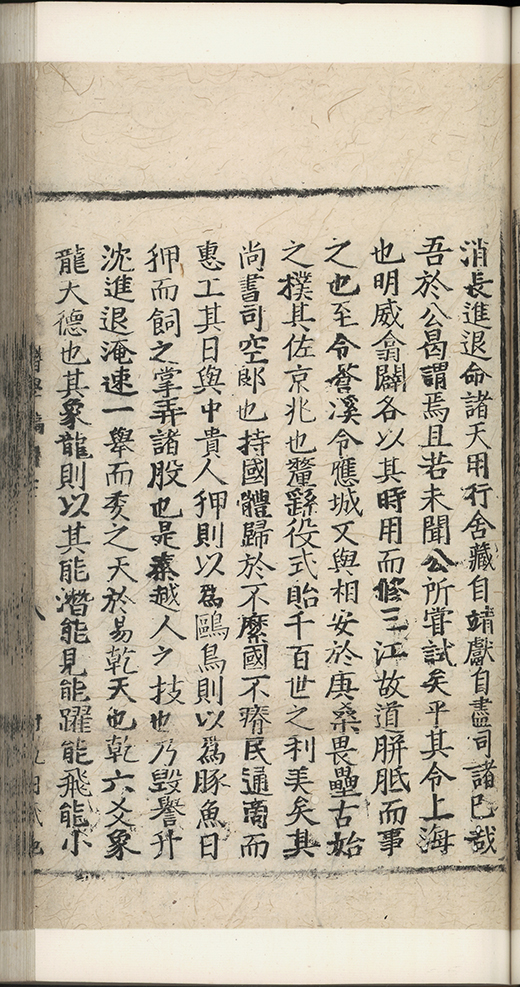 消長進退命諸天用行舍藏自靖獻自盡司諸已哉
吾於公曷謂焉且若未聞公所嘗試矣乎其令上海
也明威翕闢各以其時用而修三江故道胼胝而事
之也至令蒼溪令應城又與相安於庚桑畏壘古始
之樸其佐京兆也釐繇役式貽千百世之利美矣其
尚書司空郎也持國體歸於不縻國不瘠民通商而
惠工其日與中貴人狎則以爲鷗鳥則以爲豚魚日
狎而飼之掌弄諸股也是秦越人之技也乃毀譽升
沈進退淹速一舉而委之天於易乾天也乾六爻象
龍大德也其象龍則以其能潛能見能躍能飛能小